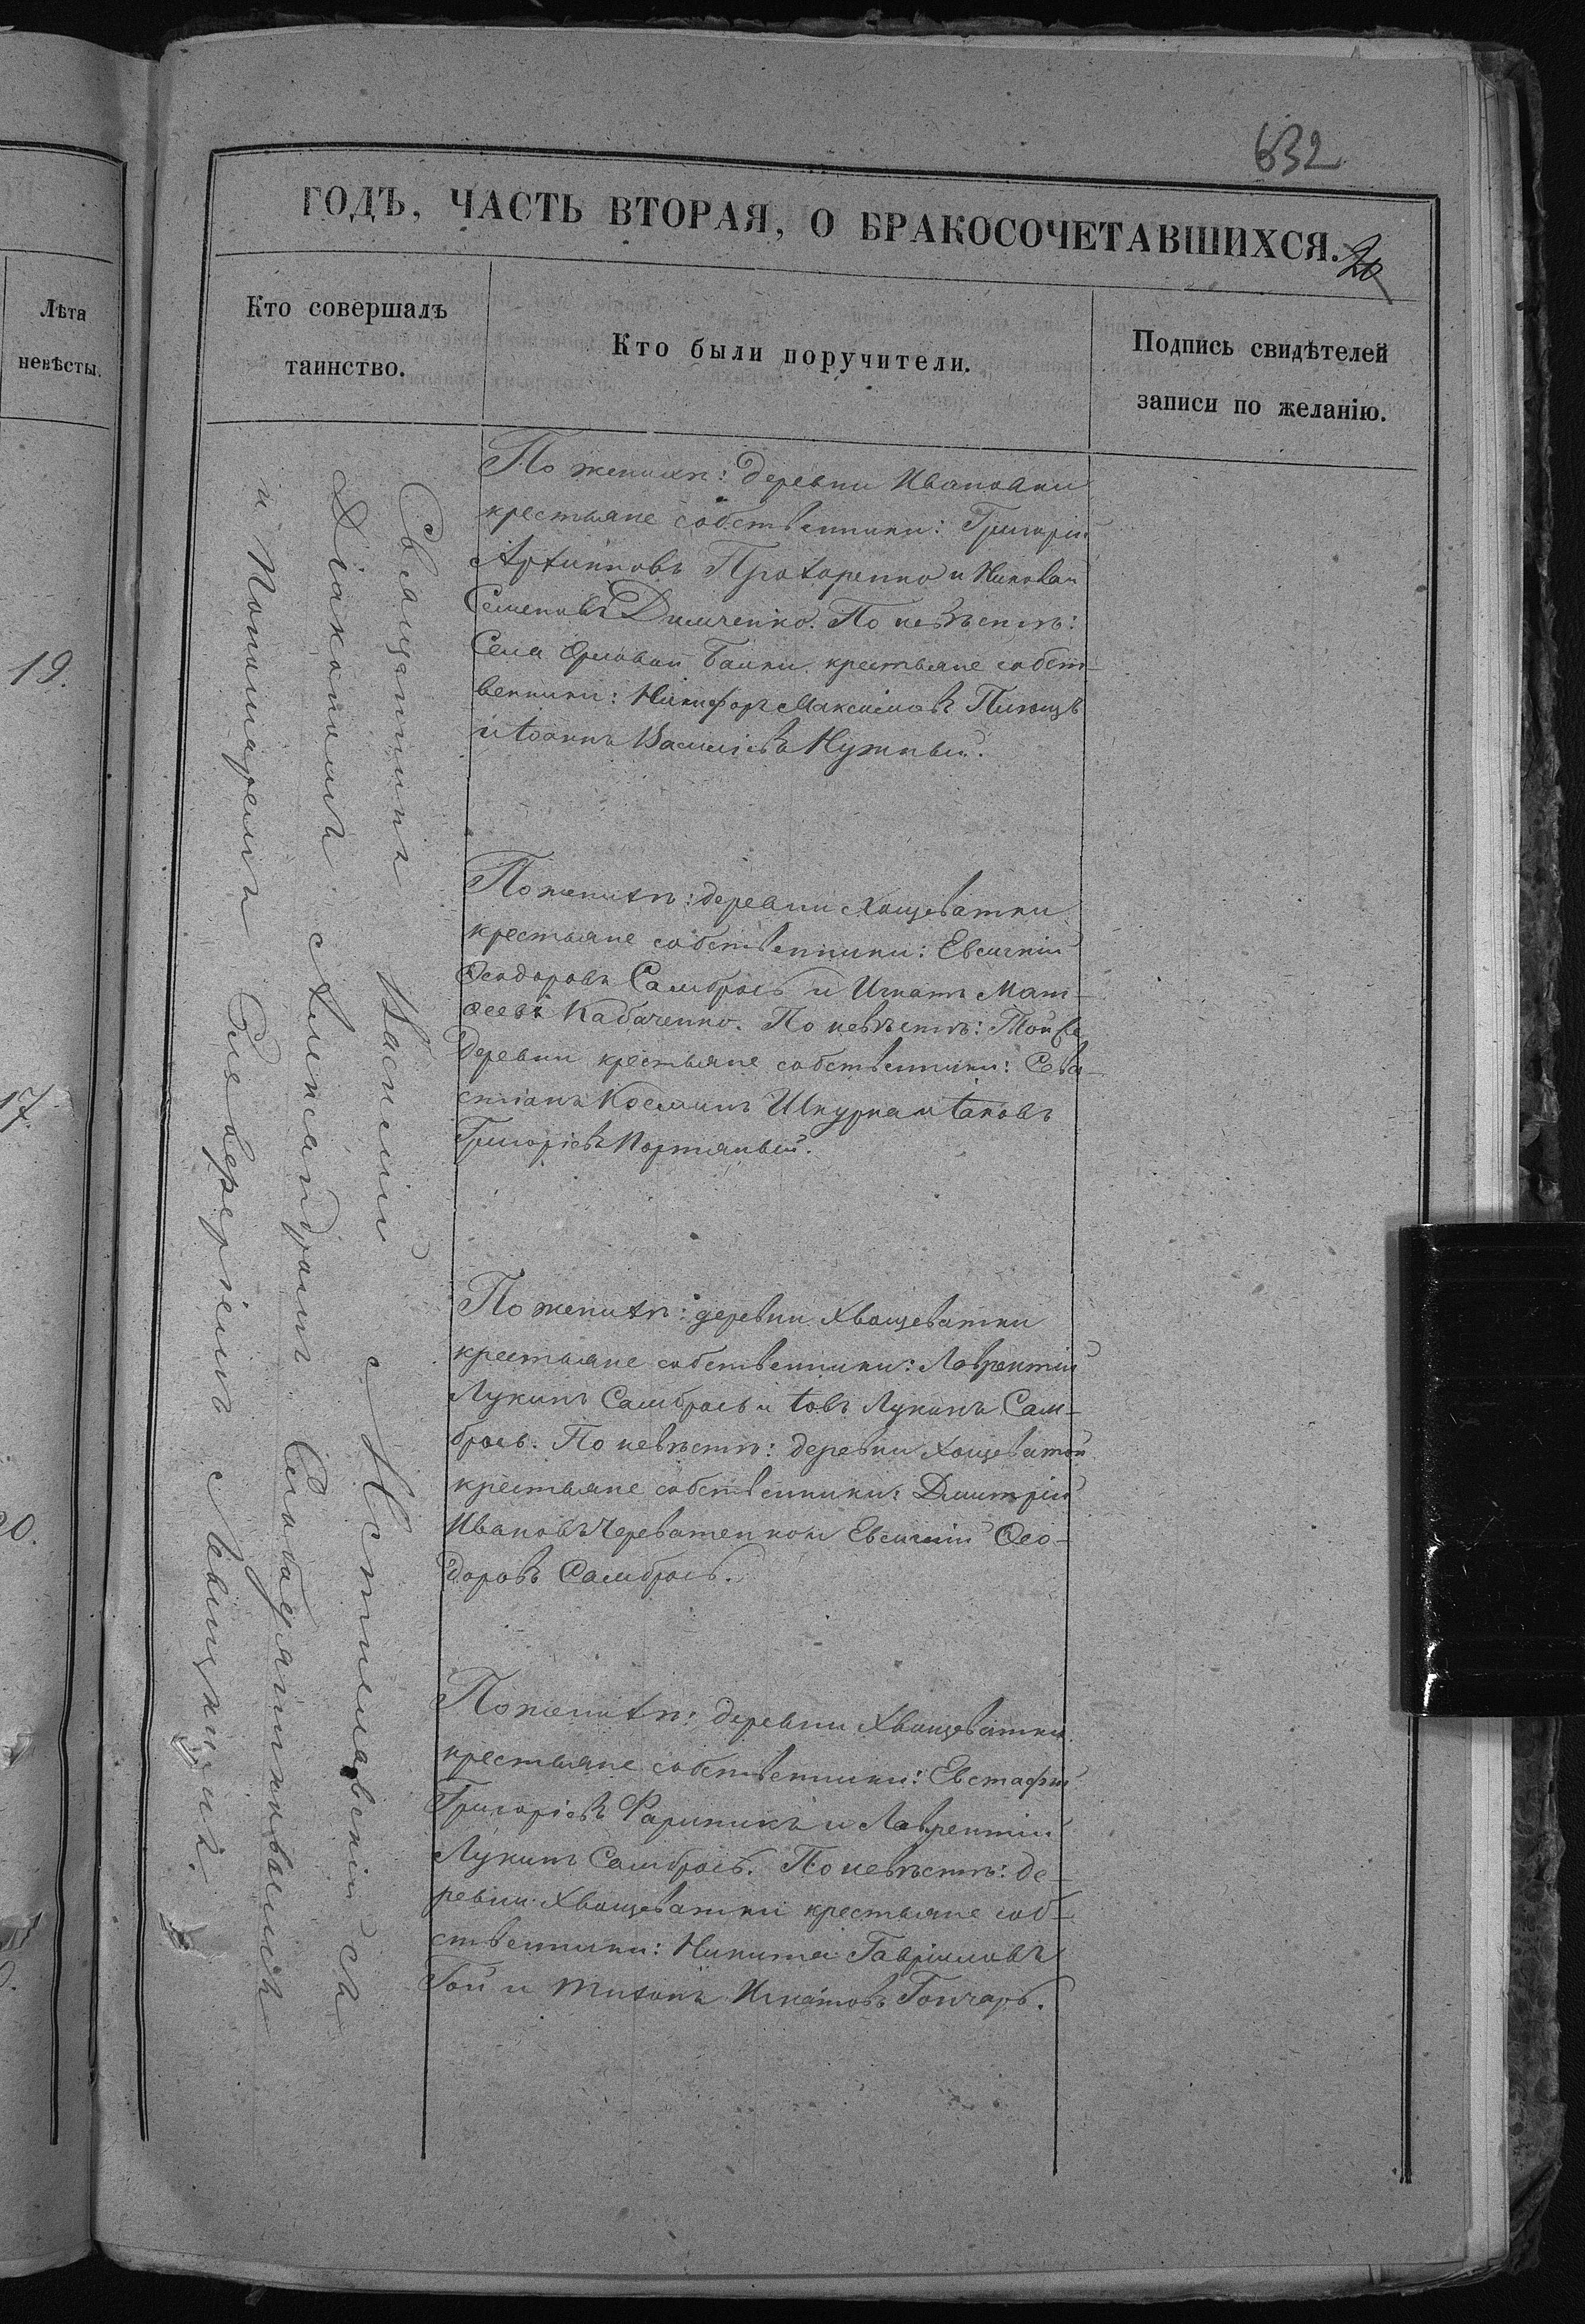 632
ГОДЪ, ЧАСТЬ ВТОРАЯ, О БРАКОСОЧЕТАВШИХСЯ.
20
Лѣта
невѣсты.
19.
17.
20.
Кто совершалъ
таинство.
Кто были поручители.
Подпись свидѣтелей
записи по желанію.
Священникъ Василій съ
Діакономъ Александромъ
и Пономаремъ Левицкимъ.
По женихѣ: деревни Ивановки
крестьяне собственники: Григорій
Архиповъ Прохоренко и Николай
Семеновъ Димченко. По невѣстѣ:
Села Орловой Балки крестьяне собст-
венники: Никифоръ Максимовъ
и Іоаннъ Василіевъ Нужный.
По женихѣ: деревни Хощеватки
крестьяне собственники: Евсигній
Ѳеодоровъ Самбросъ и Игнатъ Мат-
ѳеевъ Кабаченко. По невѣстѣ: Той же
деревни крестьяне собственники: Сева-
стіанъ Косминъ Шкурка и Іаковъ
Григоріевъ Портяный.
По женихѣ: деревни Хвощеватки
крестьяне собственники: Лаврентій
Лукинъ Самбросъ и Іовъ Лукинъ Сам-
бросъ. По невѣстѣ: деревни Хощеватой
крестьяне собственники: Димитрій
Ивановъ Череватенко и Евсигній Ѳео-
доровъ Самбросъ.
По женихѣ: деревни Хвощеватки
крестьяне собственники: Евстафій
Григоріевъ Фариникъ и Лаврентій
Лукинъ Самбросъ. По невѣстѣ: де-
ревни Хвощеватки крестьяне соб-
ственники: Никита Гавріиловъ
Гой и Тихонъ Игнатовъ Гончаръ.